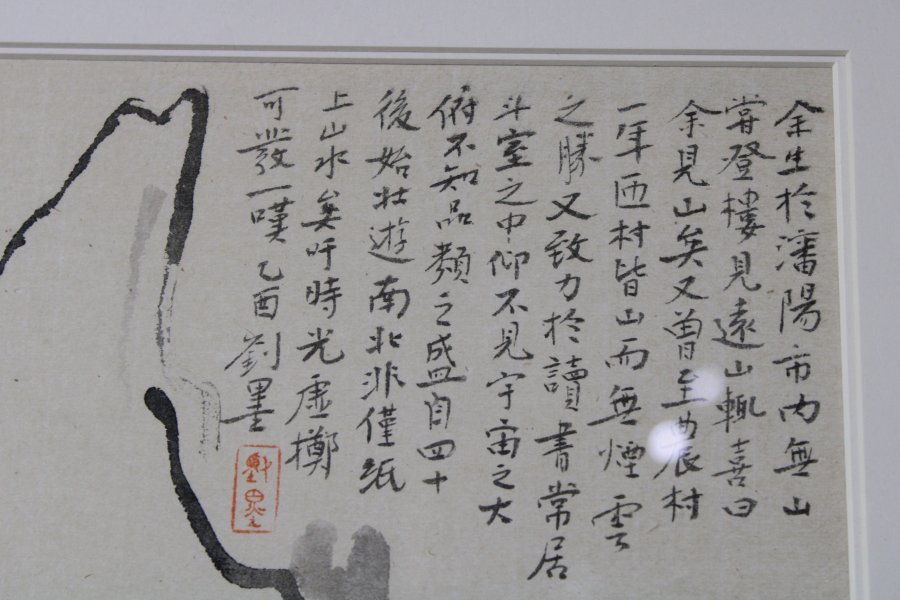 余生於瀋陽市內無山
嘗登樓見遠山輒喜曰
余見山矣又曾至農村
一年西村皆山而無煙雲
之勝又致力於讀書常居
斗室之中仰不見宇宙之大
俯不知品類之盛自四十
後始壯遊南北非僅紙
上山水矣吁時光虛擲
可發一嘆乙酉劉墨
劉墨